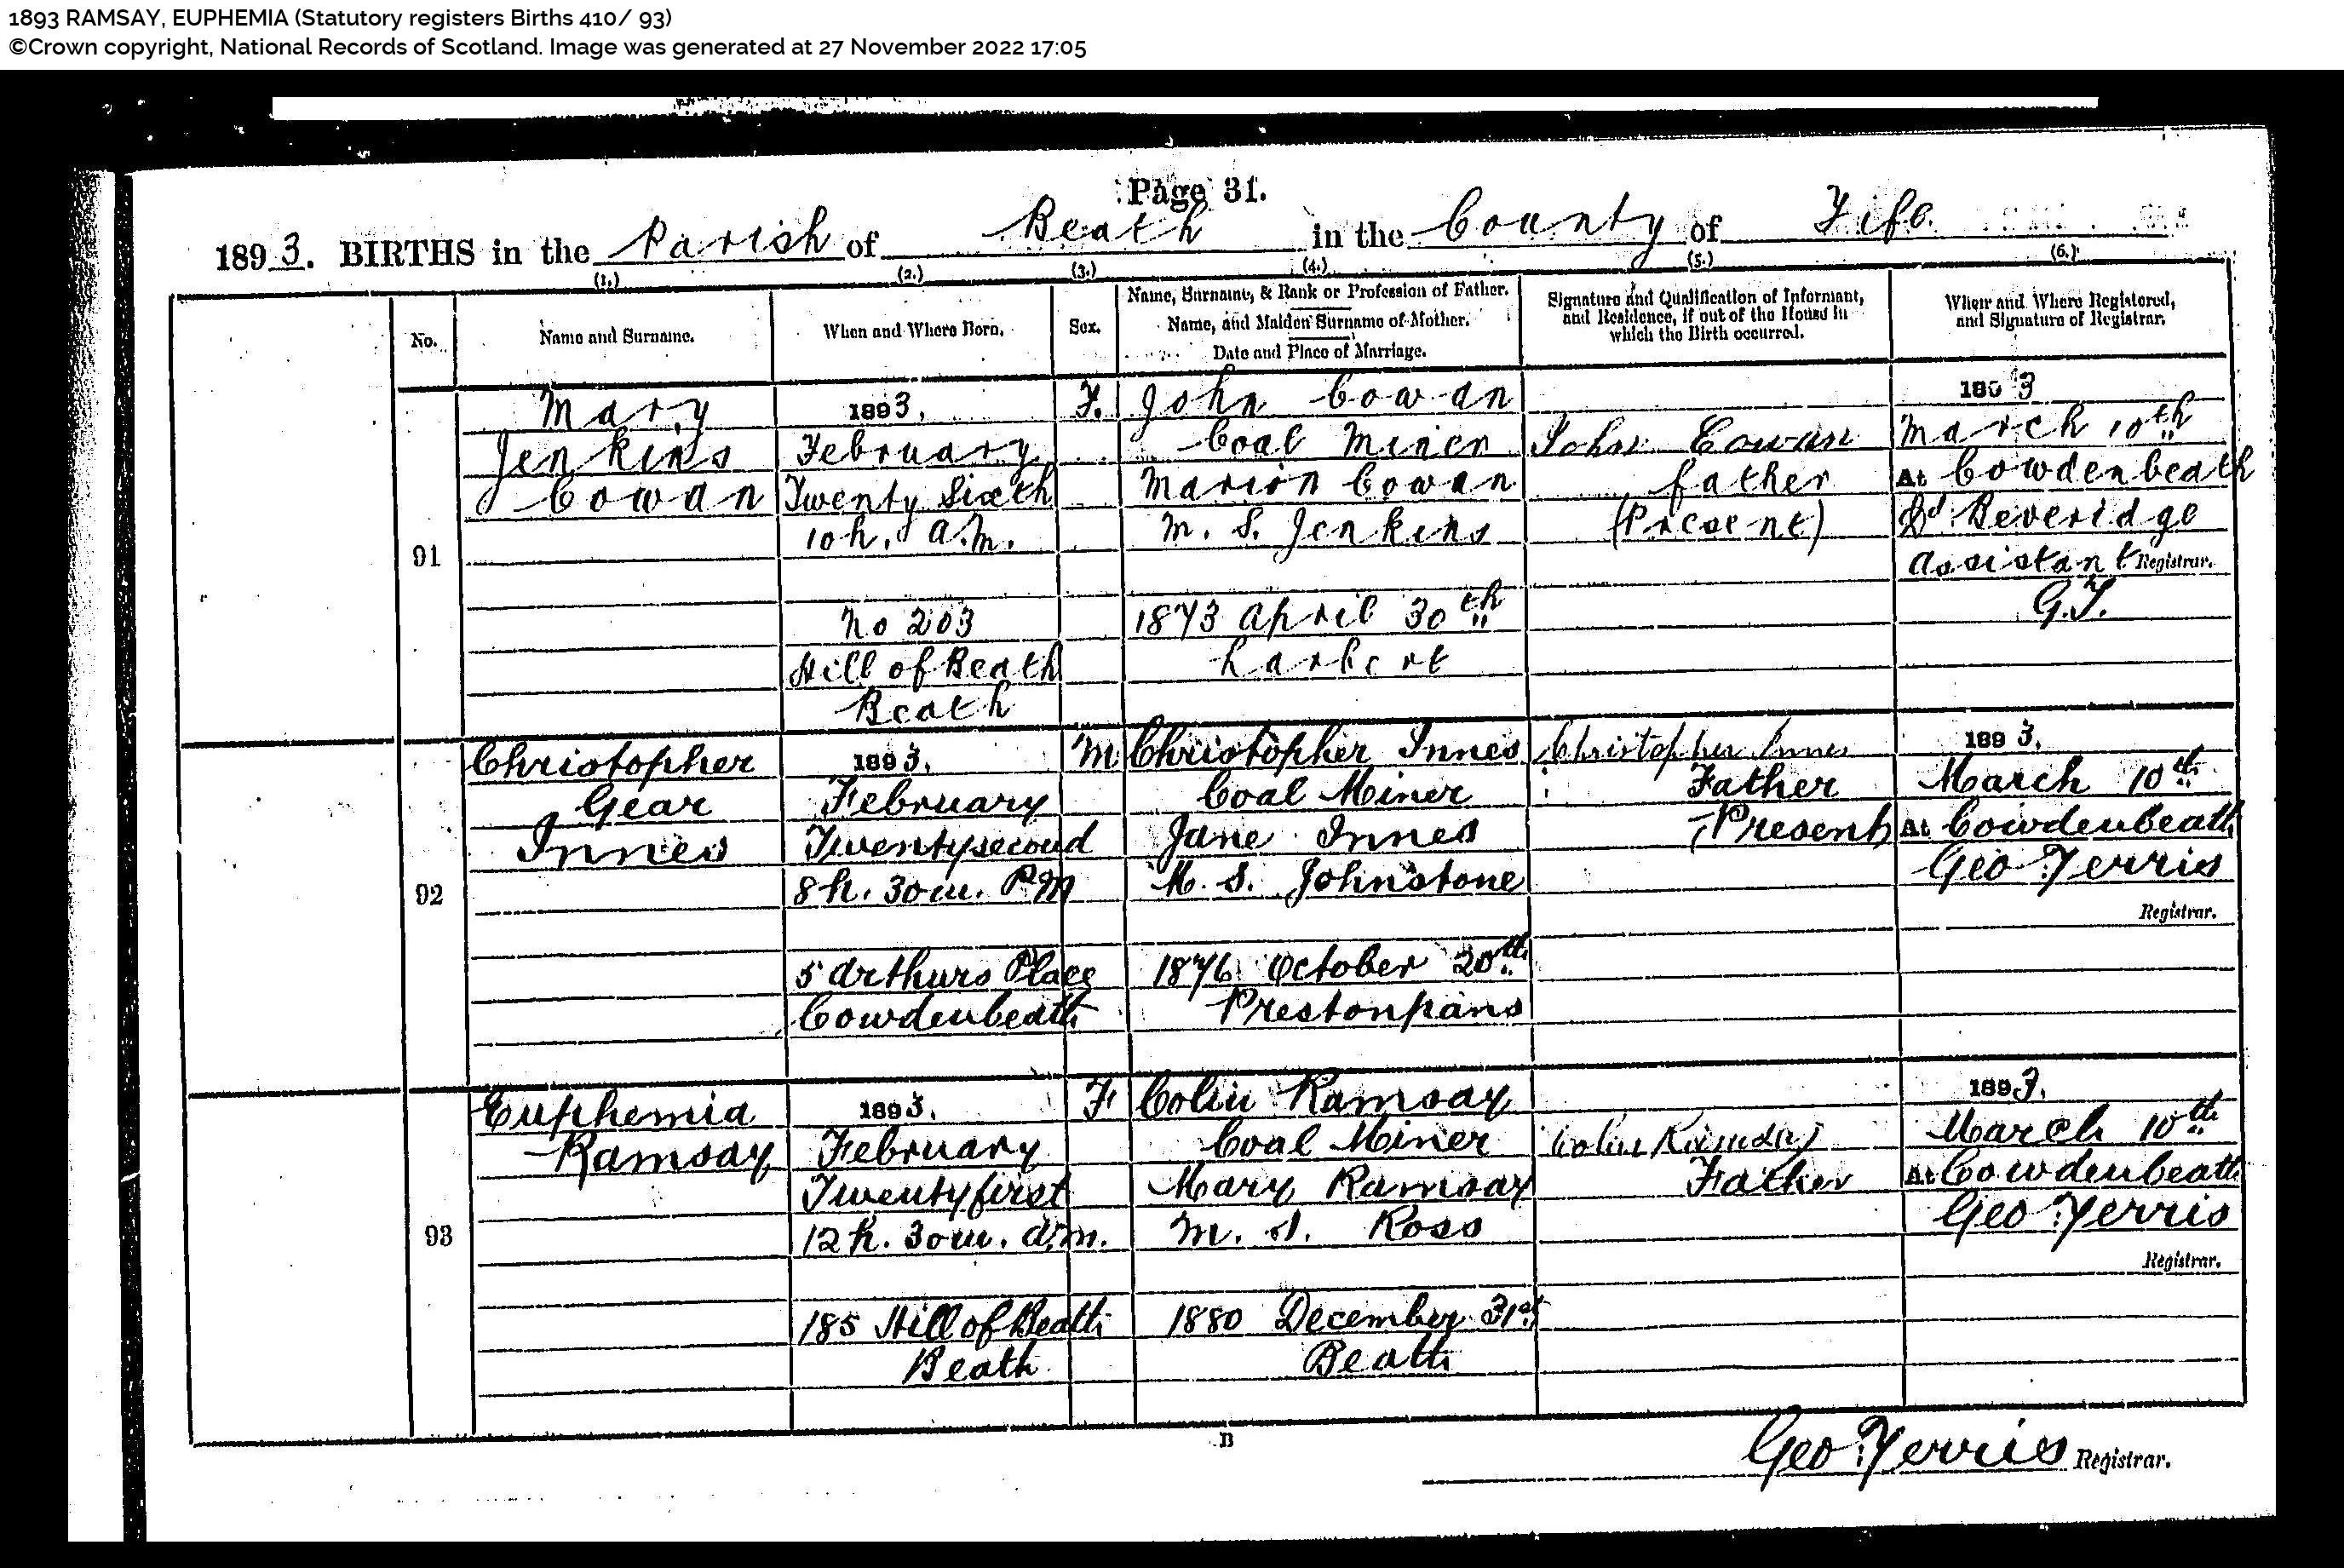 1893 RAMSAY, EUPHEMIA (Statutory registers Births 410/ 93)
©Crown copyright, National Records of Scotland. Image was generated at 27 November 2022 17:05
Page 31.
1893. BIRTHS in the Parish of Beath in the County of Fife
(1.) (2.) (3.) (4.) (5.) (6.)
No.
Name and Surname.
When and Where Born.
Sex.
Name, Surname, & Rank or Profession of Father.
Name, and Maiden Surname of Mother.
Date and Place of Marriage.
Signature and Qualification of Informant,
and Residence, if out of the House in
which the Birth occurred.
When and Where Registered,
and Signature of Registrar.
91
Mary
Jenkins
Cowan
1893.
February
Twenty Sixth
10h. A.M.
No 203
Hill of Beath
Beath
F.
John Cowan
Coal Miner
Marion Cowan
M. S. Jenkins
1873 April 30th
Larbert
John Cowan
father
(Present)
1893
March 10th
At Cowdenbeath
Beveridge
Assistant Registrar.
G.F.
92
Christopher
Gear
Innes
1893.
February
Twentysecond
8h. 30m. P.M
5 Arthurs Place
Cowdenbeath
M
Christopher Innes
Coal Miner
Jane Innes
M. S. Johnstone
1876 October 20th
Prestonpans
Christopher Innes
Father
(Present)
1893.
March 10th
At Cowdenbeath
Geo Ferris
Registrar.
93
Euphemia
Ramsay
1893.
February
Twentyfirst
12h. 30m. A.m.
185 Hill of Beath
Beath
F
Colin Ramsay
Coal Miner
Mary Ramsay
M. S. Ross
1880 December 31st
Beath
Colin Ramsay
Father
1893.
March 10th
At Cowdenbeath
Geo Ferris
Registrar.
B
Geo Ferris Registrar.